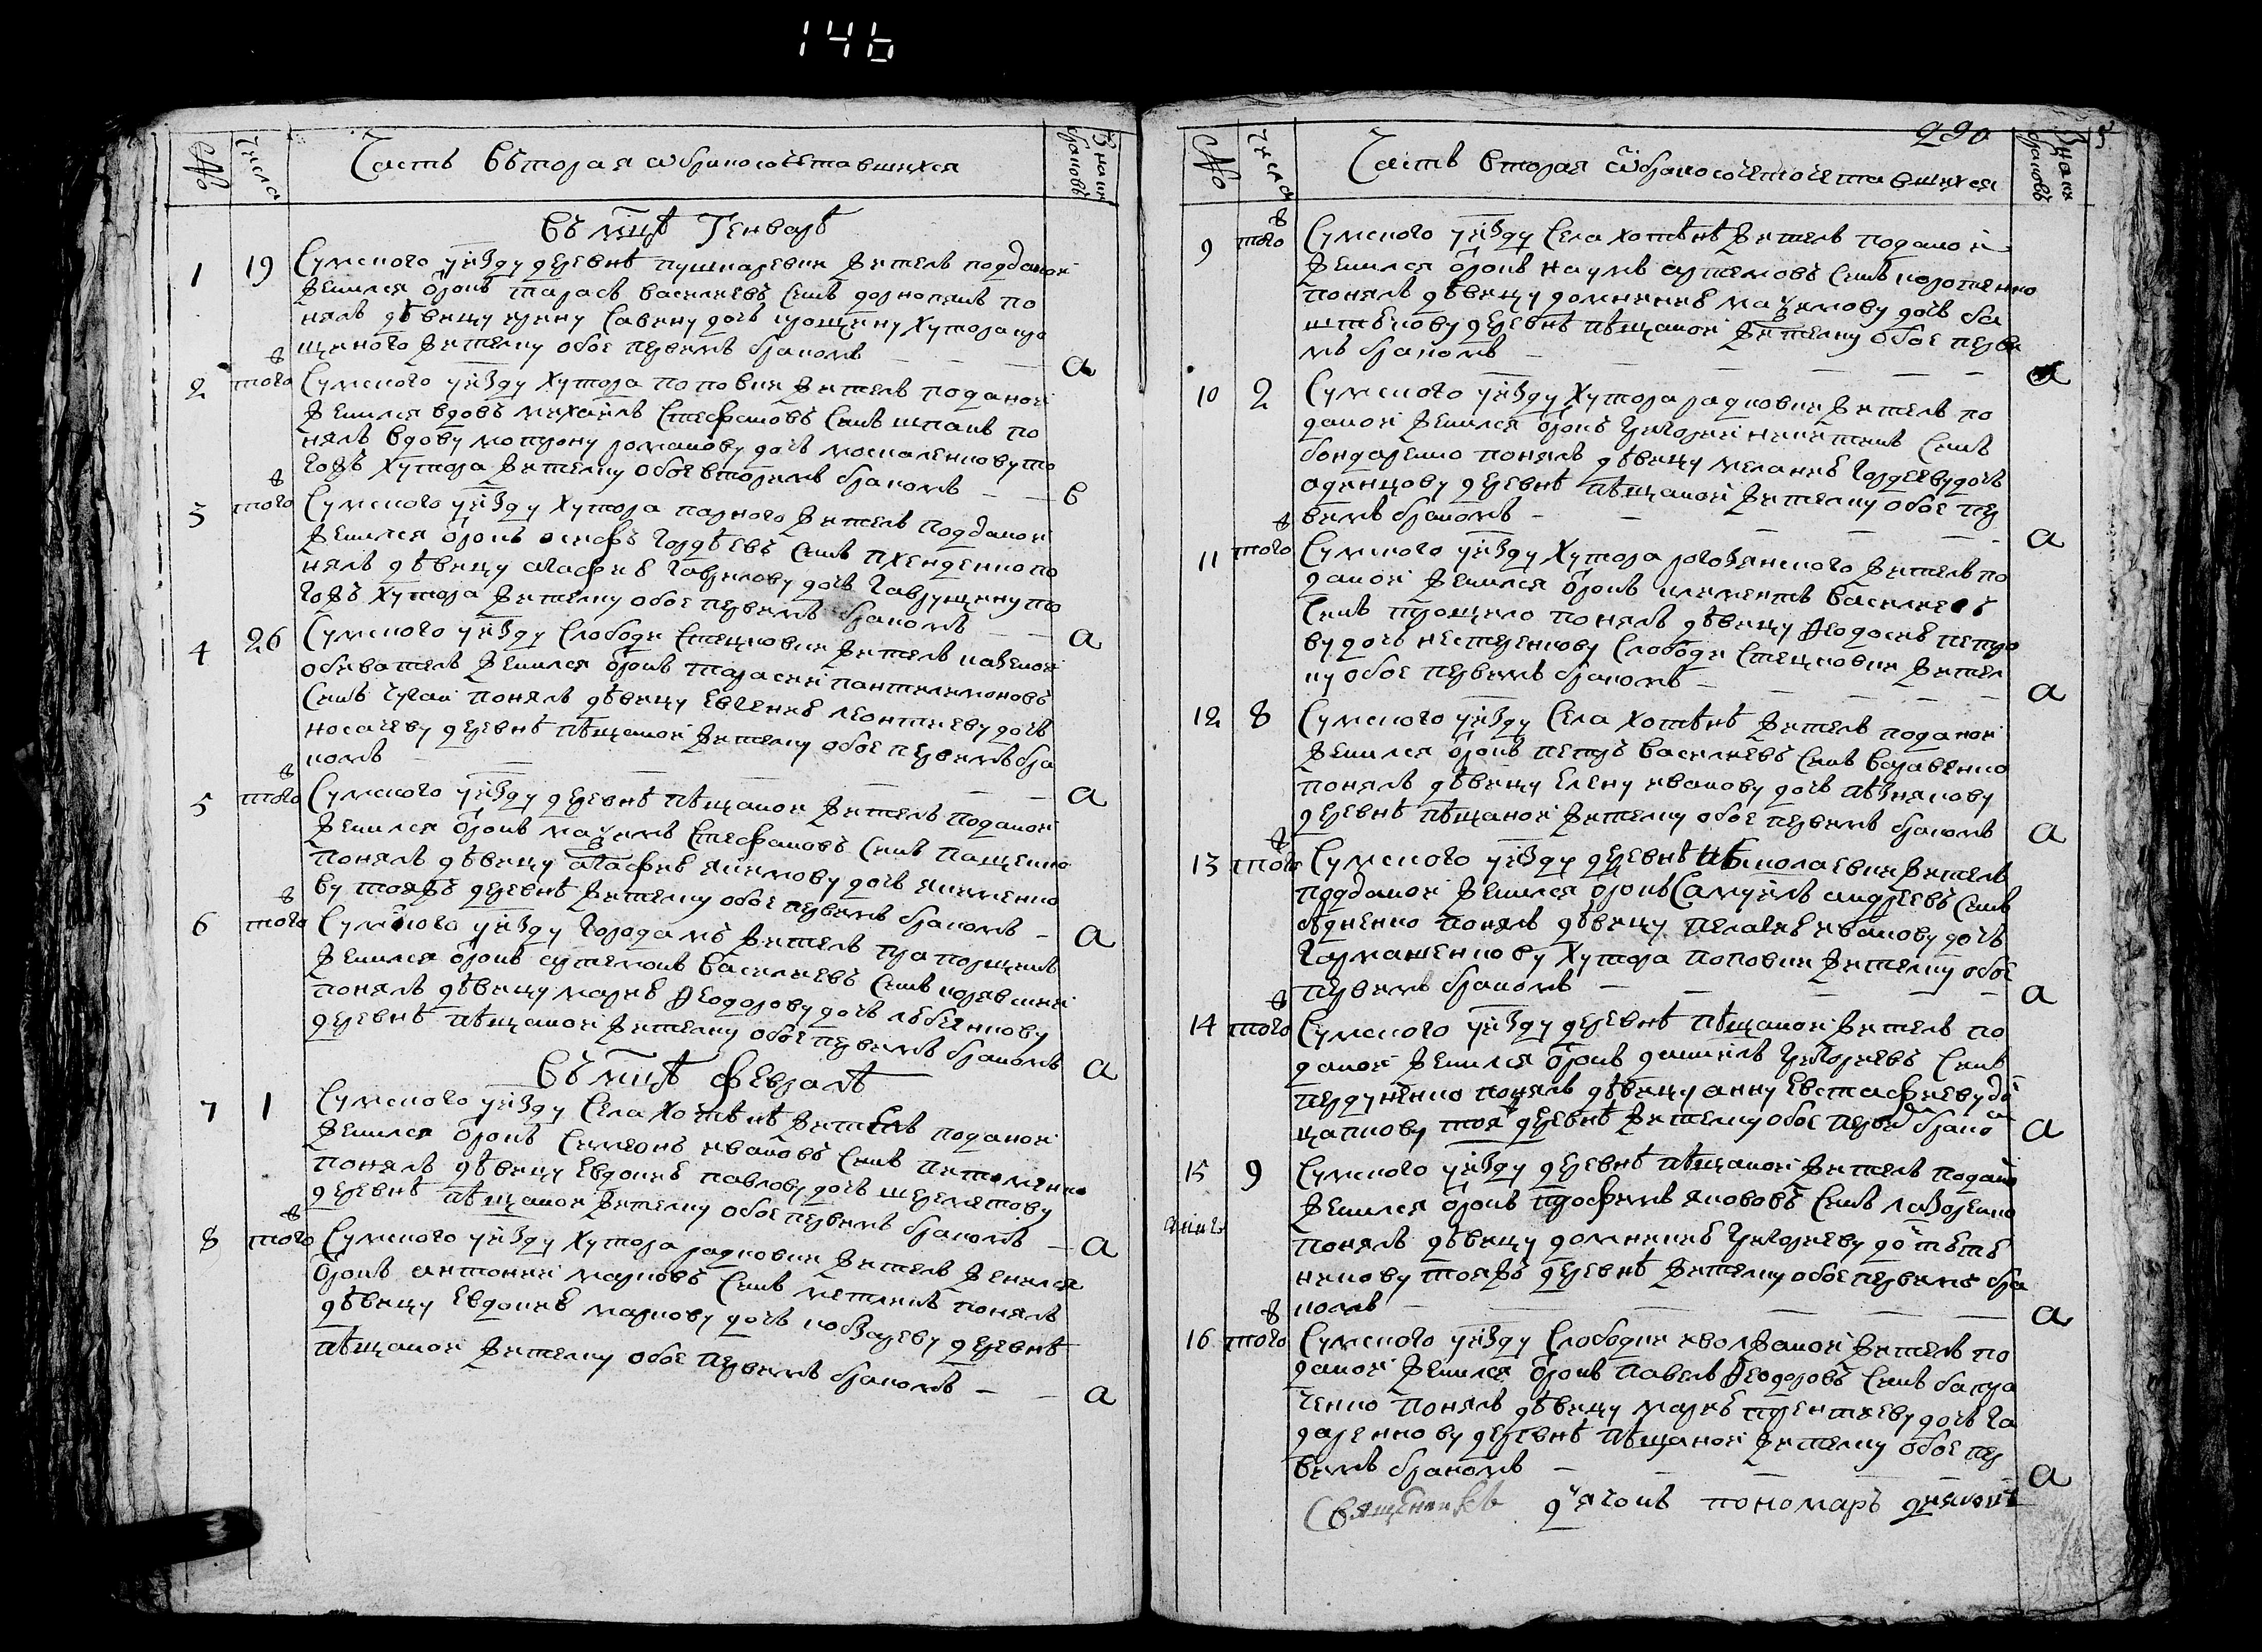 146
№
Числа
Часть вѣторая о бракосочетавшихся
Знаки браковъ
Въ мцѣ Генварѣ
1 19 Сумского уѣзду деревнѣ пушкаревки житель подданой
женился отрокъ тарасъ василиевъ синъ
нялъ дѣвицу ирину савину дочь хутора
житилку обое первимъ бракомъ а
2 того Сумского уѣзду хутора поповки житель поданой
женился вдовъ михаилъ стефановъ синъ шпакъ по
нялъ вдову мотрону романову дочь москаленкову то
гожъ хутора жителку обое вторимъ бракомъ в
3 того Сумского уѣзду хутора парного житель подданой
женился отрокъ осифъ гордѣевъ синъ по
нялъ дѣвицу агафию гаврилову дочь гаврущину то
гожъ хутора жителку обое первимъ бракомъ а
4 26 Сумского уѣзду слободи стецковки житель казеной
обиватель женился отрокъ тарасий пантилимоновъ
синъ чугай понялъ дѣвицу евгению леонтиеву дочь
носачеву деревнѣ пѣщаной жителку обое первимъ бра
комъ а
5 того Сумского уѣзду деревнѣ пѣщаной житель поданой
женился отрокъ маѯимъ стефановъ синъ пащенко
понялъ дѣвицу агафию якимову дочь якименко
ву тояжъ деревнѣ жителку обое первимъ бракомъ а
6 того Сумского уѣзду города житель прапорщикъ
женился отрокъ артемонъ василиевъ синъ
понялъ дѣвицу марию ѳеодорову дочь
деревнѣ пѣщаной жителку обое первимъ бракомъ а
Въ мцѣ февралѣ
7 1 Сумского уѣзду села хотѣнѣ житель поданой
женился отрокъ симеонъ ивановъ синъ
понялъ дѣвицу евдокию павлову дочь шереметову
деревнѣ пѣщаной жителку обое первимъ бракомъ а
8 того Сумского уѣзду хутора радковки житель женился
отрокъ антоний марковъ синъ понялъ
дѣвицу евдокию маркову дочь кобзареву деревнѣ
пѣщаной жителку обое первимъ бракомъ а
290
№
Числа
Часть вторая о бракосочетавшихся
Знаки браковъ
9 того Сумского уѣзду села хотѣнѣ житель поданой
женился отрокъ наумъ артемовъ синъ коротенко
понялъ дѣвицу домникию маѯимову дочь ба
деревнѣ пѣщаной жителку обое перви
мъ бракомъ а
10 2 Сумского уѣзду хутора радковки житель по
даной женился отрокъ григорий никитинъ синъ
бондаренко понялъ дѣвицу меланию гордееву дочь
одинцову деревнѣ пѣщаной жителку обое пер
вимъ бракомъ а
11 того Сумского уѣзду хутора житель по
даной женился отрокъ климентъ василиевъ
синъ понялъ дѣвицу ѳеодосию петро
ву дочь нестеренкову слободи стецковки жител
ку обое первимъ бракомъ а
12 8 Сумского уѣзду села хотѣнѣ житель поданой
женился отрокъ петръ василиевъ синъ
понялъ дѣвицу елену иванову дочь пѣзнякову
деревнѣ пѣщаной жителку обое первимъ бракомъ а
13 того Сумского уѣзду деревнѣ житель
подданой женился отрокъ самуилъ андреевъ синъ
понялъ дѣвицу пелагию иванову дочь
гармашенкову хутора поповки жителку обое
первимъ бракомъ а
14 того Сумского уѣзду деревнѣ пѣщаной житель по
даной женился отрокъ даниилъ григориевъ синъ
понялъ дѣвицу анну евстафиеву до
цапкову тоя деревнѣ жителку обое перви бракомъ а
15 9 Сумского уѣзду деревнѣ пѣщаной житель подано
женился отрокъ трофимъ якововъ синъ лазоренко
понялъ дѣвицу домникию григориеву до
никову тояжъ деревнѣ жителку обое первимъ бра
комъ а
16 того Сумского уѣзду слободки житель по
даной женился отрокъ павелъ ѳеодоровъ синъ бакра
ченко понялъ дѣвицу марию терентиеву дочь го
даренкову деревнѣ пѣщаной жителку обое пер
вимъ бракомъ а
Священикъ дячокъ пономаръ